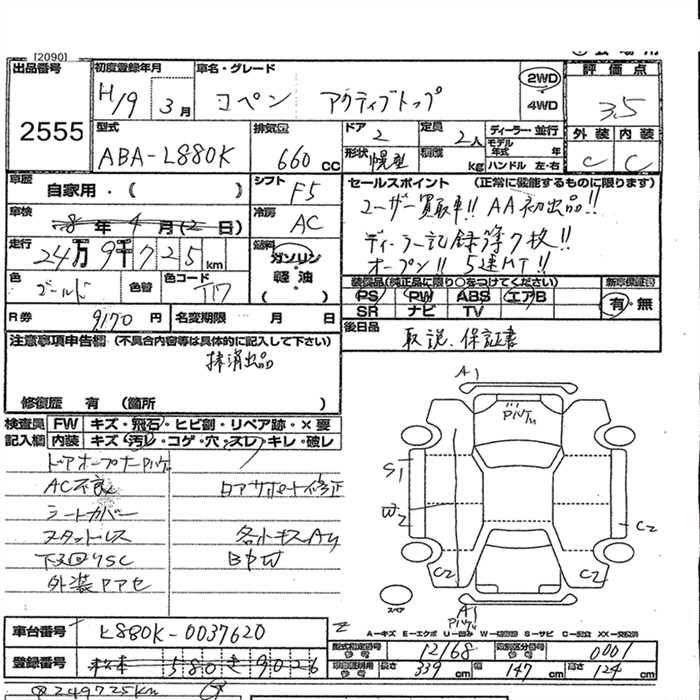 [2090]
出品番号
2555
初度登録年月
H19 3月
車名・グレード
コペン アクティブトップ
2WD
4WD
評価点
3.5
外装 内装
C C
型式
ABA-L880K
排気量
660 cc
ドア 2
定員 2人
形状 幌型
積載 kg
ディーラー・並行
モデル年式 年
ハンドル 左・右
車歴 自家用・( )
シフト F5
セールスポイント (正常に機能するものに限ります)
ユーザー買取車!! AA初出品!!
ディーラー記録簿7枚!!
オープン!! 5速MT!!
車検 8年4月(2日)
冷房 AC
走行 24万9千725km
燃料 ガソリン
軽・油
( )
色 ゴールド 色替 色コード T17
装備品(純正品に限り○をつけてください) 新車保証書
PS PW ABS エアB
SR ナビ TV
有・無
R券 9170円 名変期限 月 日
後日品 取説、保証書
注意事項申告欄 (不具合内容等は具体的に記入して下さい)
抹消出品
修復歴 有 (箇所 )
検査員記入欄
FW キズ・飛石・ヒビ割・リペア跡・×要
内装 キズ・汚レ・コゲ・穴・スレ・キレ・破レ
AC不良
シートカバー
スタッドレス
下回りSC
外装ヤケアセ
ロアサポート修正
各小キズAU
A1
PハゲU
S1
W2
C2
C2
C2
A1
スペア
A-キズ E-エクボ U-凹み S-サビ C-腐食 XX-交換済
車台番号 L880K-0037620
登録番号 松本 580 9026
型式指定番号 12168
類別区分番号 0001
長さ 339 cm 幅 147 cm 高さ 124 cm
249725km